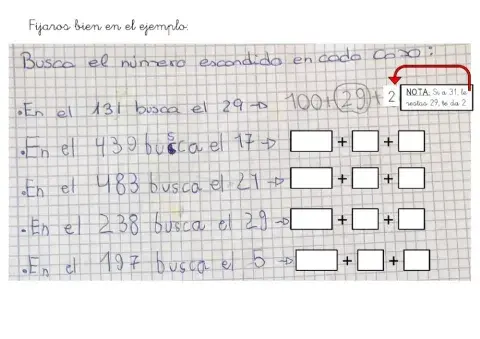 Fijaros bien en el ejemplo:
Busca el número escondido en cada caso:
.En el 131 busca el 29 → 100+29+2 NOTA: Si a 31, le restas 29, te da 2
.En el 439 busca el 17 → + +
.En el 483 busca el 21 → + +
.En el 238 busca el 29 → + +
.En el 197 busca el 5 → + +